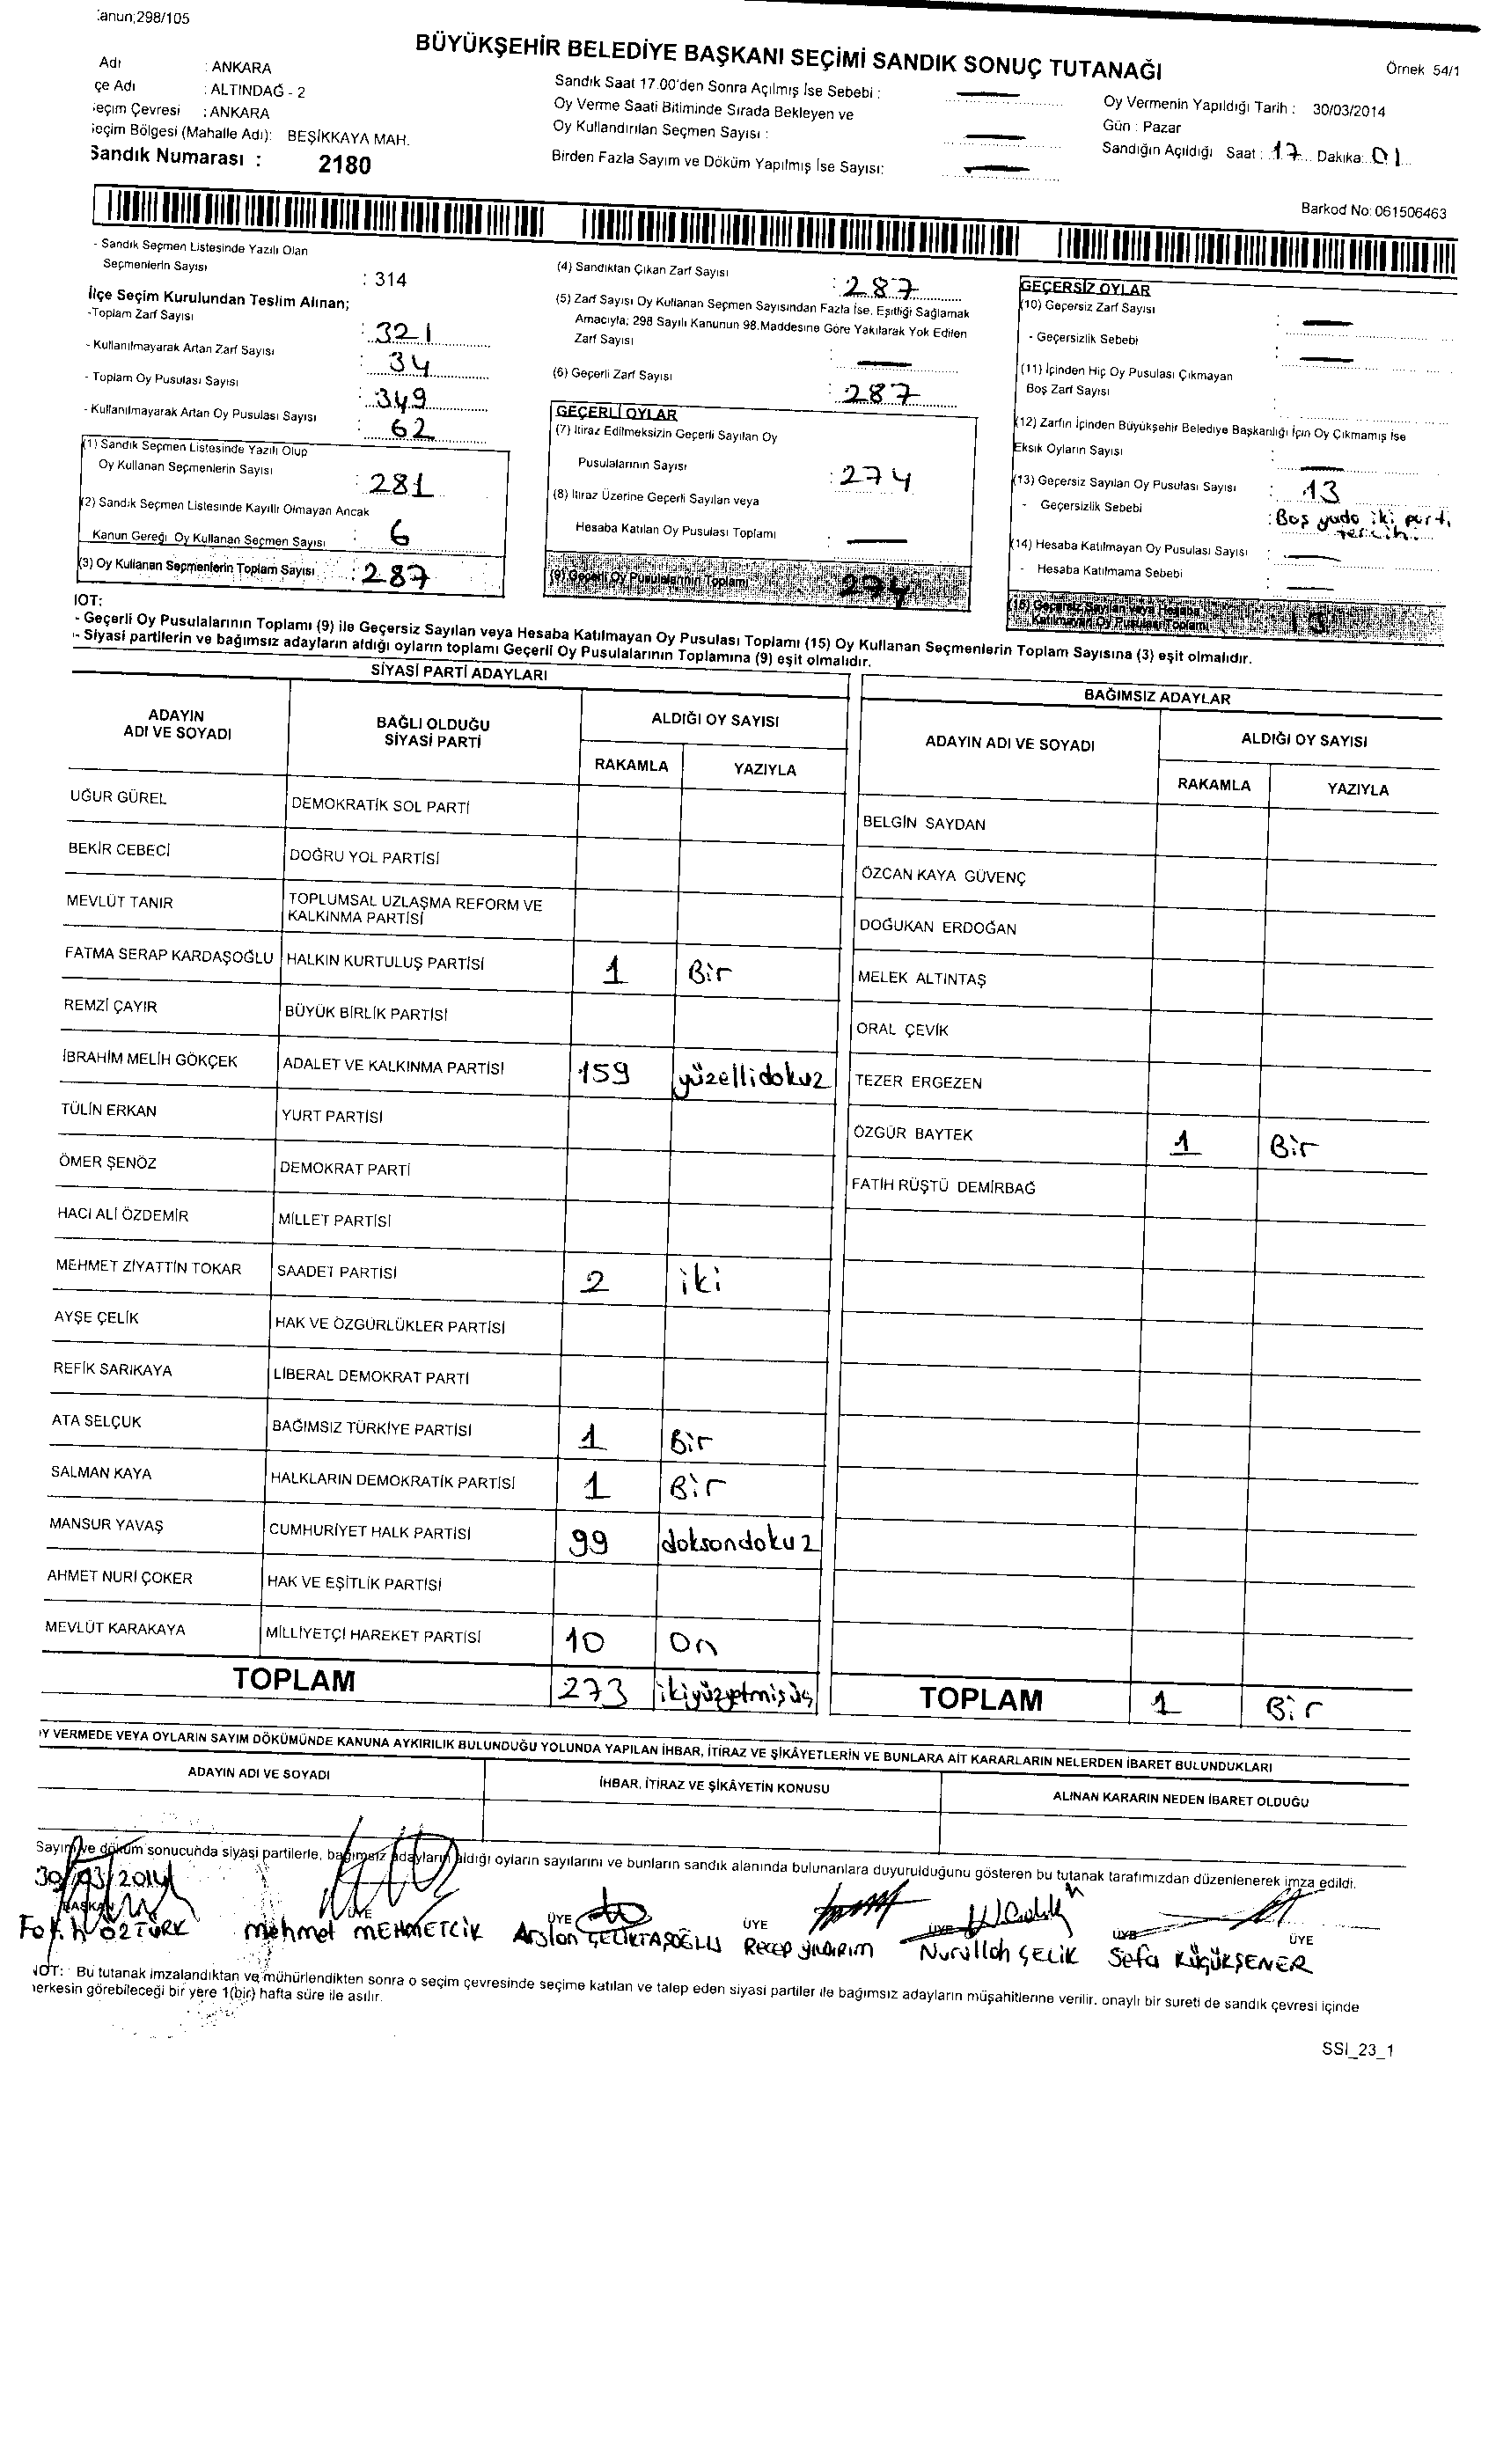 Kanun;298/105
BÜYÜKŞEHİR BELEDİYE BAŞKANI SEÇİMİ SANDIK SONUÇ TUTANAĞI
Örnek 54/1
Adı : ANKARA
çe Adı : ALTINDAĞ - 2
eçim Çevresi : ANKARA
eçim Bölgesi (Mahalle Adı): BEŞİKKAYA MAH.
Sandık Numarası : 2180
Sandık Saat 17.00'den Sonra Açılmış İse Sebebi :
Oy Verme Saati Bitiminde Sırada Bekleyen ve
Oy Kullandırılan Seçmen Sayısı :
Birden Fazla Sayım ve Döküm Yapılmış İse Sayısı:
Oy Vermenin Yapıldığı Tarih : 30/03/2014
Gün : Pazar
Sandığın Açıldığı Saat : 17 Dakika: 01
Barkod No: 061506463
- Sandık Seçmen Listesinde Yazılı Olan
Seçmenlerin Sayısı : 314
İlçe Seçim Kurulundan Teslim Alınan;
-Toplam Zarf Sayısı : 321
- Kullanılmayarak Artan Zarf Sayısı : 34
- Toplam Oy Pusulası Sayısı : 349
- Kullanılmayarak Artan Oy Pusulası Sayısı : 62
(1) Sandık Seçmen Listesinde Yazılı Olup
Oy Kullanan Seçmenlerin Sayısı : 281
(2) Sandık Seçmen Listesinde Kayıtlı Olmayan Ancak
Kanun Gereği Oy Kullanan Seçmen Sayısı : 6
(3) Oy Kullanan Seçmenlerin Toplam Sayısı : 287
(4) Sandıktan Çıkan Zarf Sayısı : 287
(5) Zarf Sayısı Oy Kullanan Seçmen Sayısından Fazla İse, Eşitliği Sağlamak
Amacıyla; 298 Sayılı Kanunun 98.Maddesine Göre Yakılarak Yok Edilen
Zarf Sayısı :
(6) Geçerli Zarf Sayısı : 287
GEÇERLİ OYLAR
(7) İtiraz Edilmeksizin Geçerli Sayılan Oy
Pusulalarının Sayısı : 274
(8) İtiraz Üzerine Geçerli Sayılan veya
Hesaba Katılan Oy Pusulası Toplamı :
(9) Geçerli Oy Pusulalarının Toplamı 274
GEÇERSİZ OYLAR
(10) Geçersiz Zarf Sayısı :
- Geçersizlik Sebebi :
(11) İçinden Hiç Oy Pusulası Çıkmayan
Boş Zarf Sayısı :
(12) Zarfın İçinden Büyükşehir Belediye Başkanlığı İçin Oy Çıkmamış İse
Eksik Oyların Sayısı :
(13) Geçersiz Sayılan Oy Pusulası Sayısı : 13
- Geçersizlik Sebebi : Boş yada iki parti
tercihi
(14) Hesaba Katılmayan Oy Pusulası Sayısı :
- Hesaba Katılmama Sebebi :
(15) Geçersiz Sayılan veya Hesaba
Katılmayan Oy Pusulası Toplamı 13
NOT:
- Geçerli Oy Pusulalarının Toplamı (9) ile Geçersiz Sayılan veya Hesaba Katılmayan Oy Pusulası Toplamı (15) Oy Kullanan Seçmenlerin Toplam Sayısına (3) eşit olmalıdır.
- Siyasi partilerin ve bağımsız adayların aldığı oyların toplamı Geçerli Oy Pusulalarının Toplamına (9) eşit olmalıdır.
SİYASİ PARTİ ADAYLARI
ADAYIN
ADI VE SOYADI
BAĞLI OLDUĞU
SİYASİ PARTİ
ALDIĞI OY SAYISI
RAKAMLA YAZIYLA
UĞUR GÜREL DEMOKRATİK SOL PARTİ
BEKİR CEBECİ DOĞRU YOL PARTİSİ
MEVLÜT TANIR TOPLUMSAL UZLAŞMA REFORM VE
KALKINMA PARTİSİ
FATMA SERAP KARDAŞOĞLU HALKIN KURTULUŞ PARTİSİ 1 Bir
REMZİ ÇAYIR BÜYÜK BİRLİK PARTİSİ
İBRAHİM MELİH GÖKÇEK ADALET VE KALKINMA PARTİSİ 159 yüzellidokuz
TÜLİN ERKAN YURT PARTİSİ
ÖMER ŞENÖZ DEMOKRAT PARTİ
HACI ALİ ÖZDEMİR MİLLET PARTİSİ
MEHMET ZİYATTİN TOKAR SAADET PARTİSİ 2 iki
AYŞE ÇELİK HAK VE ÖZGÜRLÜKLER PARTİSİ
REFİK SARIKAYA LİBERAL DEMOKRAT PARTİ
ATA SELÇUK BAĞIMSIZ TÜRKİYE PARTİSİ 1 Bir
SALMAN KAYA HALKLARIN DEMOKRATİK PARTİSİ 1 Bir
MANSUR YAVAŞ CUMHURİYET HALK PARTİSİ 99 doksandokuz
AHMET NURİ ÇOKER HAK VE EŞİTLİK PARTİSİ
MEVLÜT KARAKAYA MİLLİYETÇİ HAREKET PARTİSİ 10 On
TOPLAM 273 ikiyüzyetmişüç
BAĞIMSIZ ADAYLAR
ADAYIN ADI VE SOYADI
ALDIĞI OY SAYISI
RAKAMLA YAZIYLA
BELGİN SAYDAN
ÖZCAN KAYA GÜVENÇ
DOĞUKAN ERDOĞAN
MELEK ALTINTAŞ
ORAL ÇEVİK
TEZER ERGEZEN
ÖZGÜR BAYTEK 1 Bir
FATİH RÜŞTÜ DEMİRBAĞ
TOPLAM 1 Bir
OY VERMEDE VEYA OYLARIN SAYIM DÖKÜMÜNDE KANUNA AYKIRILIK BULUNDUĞU YOLUNDA YAPILAN İHBAR, İTİRAZ VE ŞİKÂYETLERİN VE BUNLARA AİT KARARLARIN NELERDEN İBARET BULUNDUKLARI
ADAYIN ADI VE SOYADI
İHBAR, İTİRAZ VE ŞİKÂYETİN KONUSU
ALINAN KARARIN NEDEN İBARET OLDUĞU
Sayım ve döküm sonucunda siyasi partilerle, bağımsız adayların aldığı oyların sayılarını ve bunların sandık alanında bulunanlara duyurulduğunu gösteren bu tutanak tarafımızdan düzenlenerek imza edildi.
30/03/2014
BAŞKAN ÜYE ÜYE ÜYE ÜYE ÜYE ÜYE
Fatih ÖZTÜRK Mehmet MEHMETCİK Arslan ÇELİKTAŞOĞLU Recep YILDIRIM Nurullah ÇELİK Sefa KÜÇÜKŞENER
NOT: Bu tutanak imzalandıktan ve mühürlendikten sonra o seçim çevresinde seçime katılan ve talep eden siyasi partiler ile bağımsız adayların müşahitlerine verilir, onaylı bir sureti de sandık çevresi içinde
herkesin görebileceği bir yere 1(bir) hafta süre ile asılır.
SSI_23_1